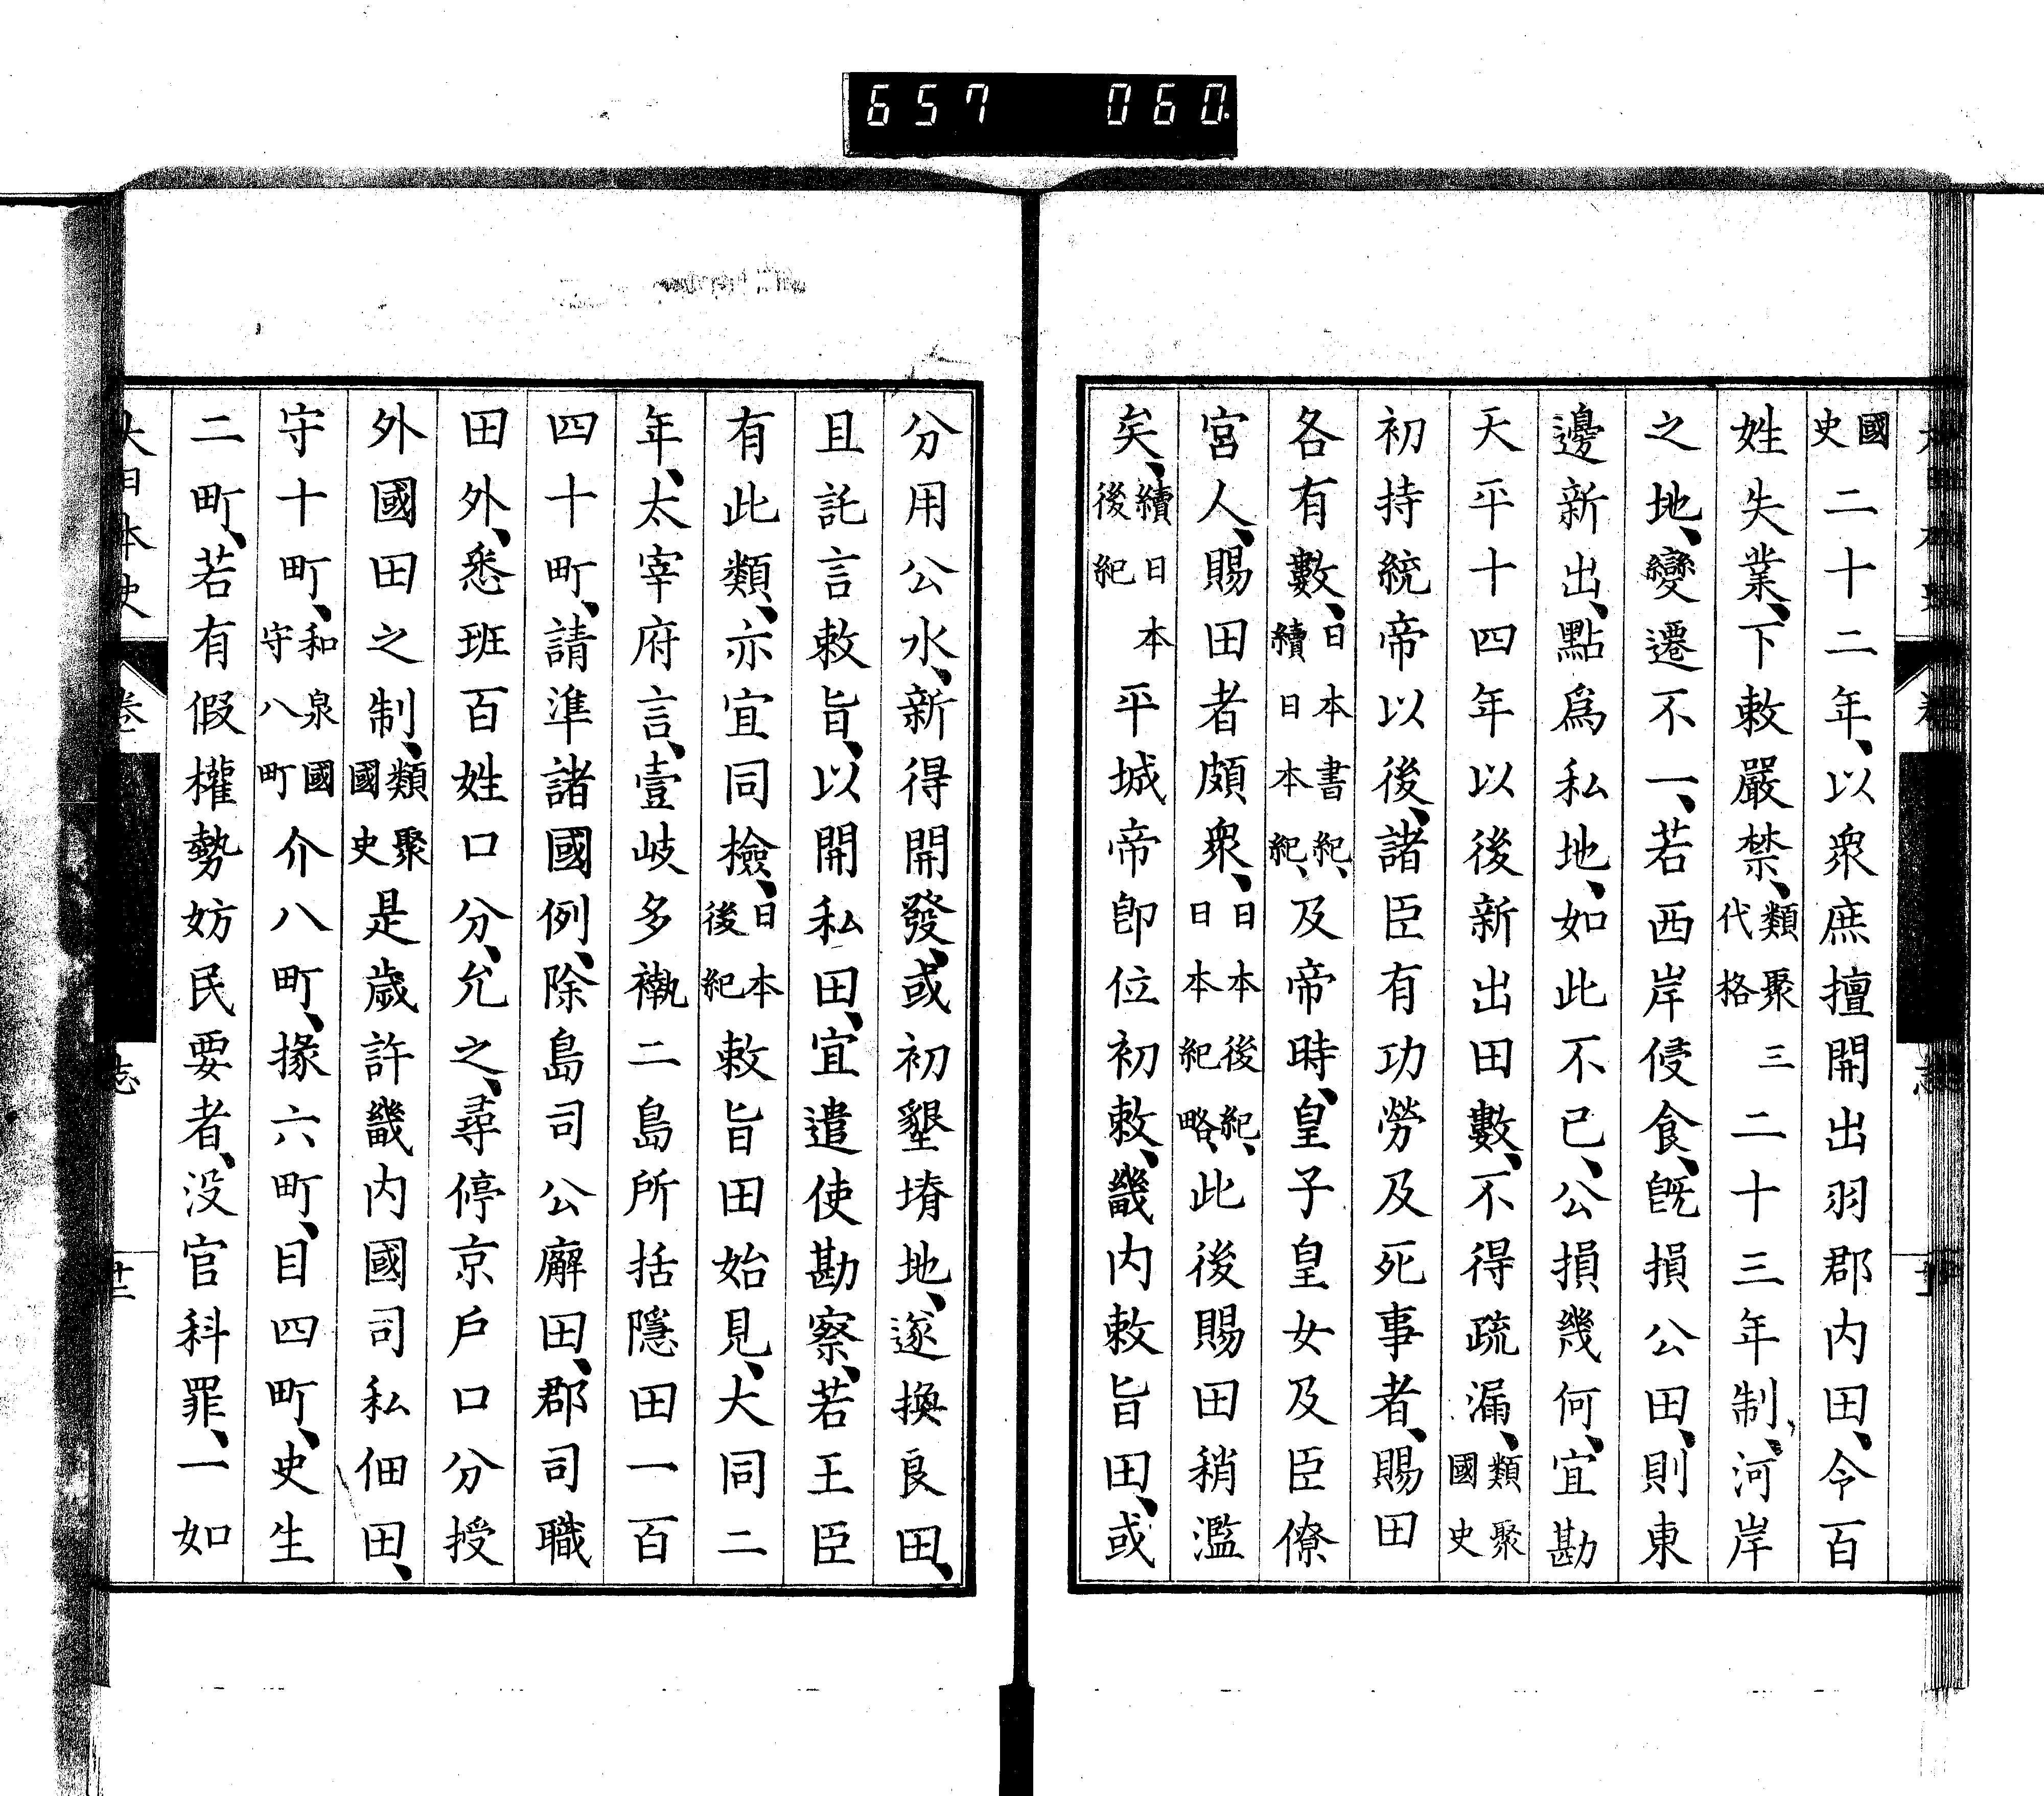 657 060
國史二十二年、以衆庶擅開出羽郡内田、令百
姓失業、下敕嚴禁、類聚三代格二十三年制、河岸
之地、變遷不一、若西岸侵食、既損公田、則東
邊新出、點爲私地、如此不已、公損幾何、宜勘
天平十四年以後新出田數、不得疏漏、類聚國史
初持統帝以後、諸臣有功勞及死事者、賜田
各有數、日本書紀、續日本紀、及帝時、皇子皇女及臣僚
宮人、賜田者頗衆、日本後紀、日本紀略、此後賜田稍濫
矣、續日本後紀平城帝卽位初敕、畿内敕旨田、或
分用公水、新得開發、或初墾堉地、遂換良田、
且託言敕旨、以開私田、宜遣使勘察、若王臣
有此類、亦宜同檢、日本後紀敕旨田始見、大同二
年、太宰府言、壹岐多褹二島所括隱田一百
四十町、請準諸國例、除島司公廨田、郡司職
田外、悉班百姓口分、允之、尋停京戶口分授
外國田之制、類聚國史是歲許畿内國司私佃田、
守十町、和泉國守八町介八町、掾六町、目四町、史生
二町、若有假權勢妨民要者、没官科罪、一如
大日本史 卷 志 廿二